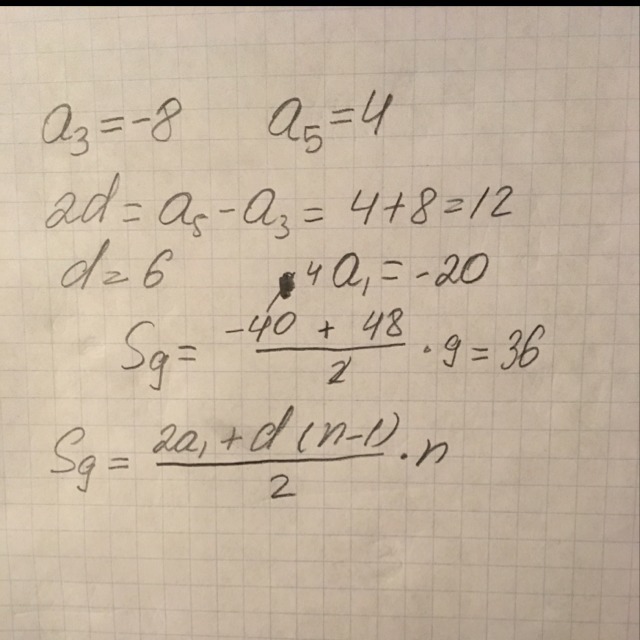 a₃ = -8 a₅ = 4
2d = a₅ - a₃ = 4 + 8 = 12
d = 6 ч a₁ = -20
S₉ = (-40 + 48)/2 · 9 = 36
S₉ = (2a₁ + d(n-1))/2 · n